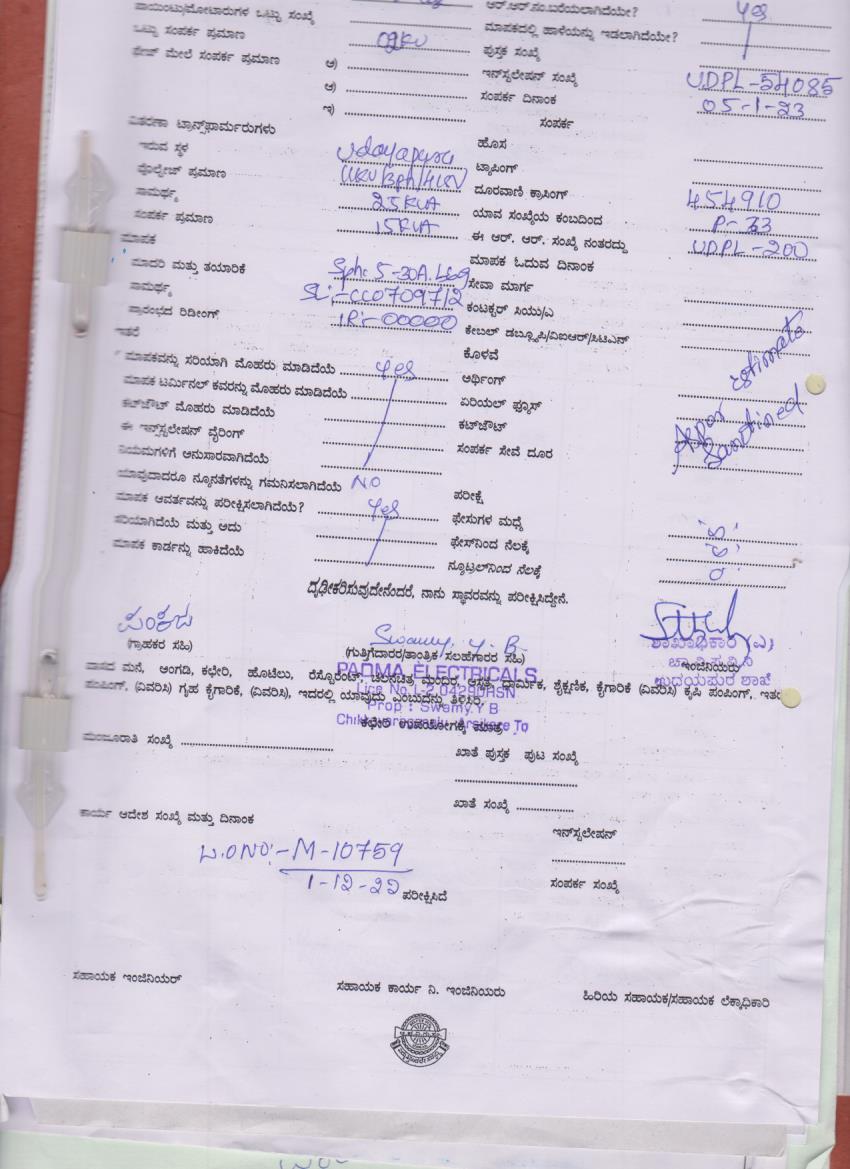 ಪಾಯಿಂಟು/ಮೋಟಾರುಗಳ ಒಟ್ಟು ಸಂಖ್ಯೆ
ಆರ್.ಆರ್.ನಂ.ಬರೆಯಲಾಗಿದೆಯೇ? Yes
ಮಾಪಕದಲ್ಲಿ ಹಾಳೆಯನ್ನು ಇಡಲಾಗಿದೆಯೇ?
ಒಟ್ಟು ಸಂಪರ್ಕ ಪ್ರಮಾಣ
ಪುಸ್ತಕ ಸಂಖ್ಯೆ
ಫೇಜ್ ಮೇಲೆ ಸಂಪರ್ಕ ಪ್ರಮಾಣ ಅ)
ಇನ್‌ಸ್ಟಲೇಷನ್ ಸಂಖ್ಯೆ UDPL-54085
ಆ) ಸಂಪರ್ಕ ದಿನಾಂಕ 05-1-23
ಇ) ಸಂಪರ್ಕ
ವಿತರಣಾ ಟ್ರಾನ್ಸ್‌ಫಾರ್ಮರುಗಳು
ಹೊಸ
ಇರುವ ಸ್ಥಳ Udayapura
ಟ್ಯಾಪಿಂಗ್
ವೋಲ್ಟೇಜ್ ಪ್ರಮಾಣ
ದೂರವಾಣಿ ಕ್ರಾಸಿಂಗ್ 454910
ಸಾಮರ್ಥ್ಯ 25 KVA
ಯಾವ ಸಂಖ್ಯೆಯ ಕಂಬದಿಂದ P-33
ಸಂಪರ್ಕ ಪ್ರಮಾಣ 15KVA
ಈ ಆರ್. ಆರ್. ಸಂಖ್ಯೆ ನಂತರದ್ದು UDPL-200
ಮಾಪಕ
ಮಾಪಕ ಓದುವ ದಿನಾಂಕ
ಮಾದರಿ ಮತ್ತು ತಯಾರಿಕೆ 5-30A. L&G
ಸೇವಾ ಮಾರ್ಗ
ಸಾಮರ್ಥ್ಯ SL:-CC0709712
ಕಂಟಕ್ಟರ್ ಸಿಯು/ಎ
ಪ್ರಾರಂಭದ ರಿಡೀಂಗ್ IR:-00000
ಕೇಬಲ್ ಡಬ್ಲ್ಯೂಪಿ/ವಿಐಆರ್/ಸಿಟಿಎನ್
ಇತರೆ
ಕೊಳವೆ
ಮಾಪಕವನ್ನು ಸರಿಯಾಗಿ ಮೊಹರು ಮಾಡಿದೆಯೆ Yes
ಅರ್ಥಿಂಗ್
ಮಾಪಕ ಟರ್ಮಿನಲ್ ಕವರನ್ನು ಮೊಹರು ಮಾಡಿದೆಯೆ
ಏರಿಯಲ್ ಫ್ಯೂಸ್
As per estimate
Sanctined
ಕಟ್‌ಔಟ್ ಮೊಹರು ಮಾಡಿದೆಯೆ
ಕಟ್‌ಔಟ್
ಈ ಇನ್‌ಸ್ಟಲೇಷನ್ ವೈರಿಂಗ್
ಸಂಪರ್ಕ ಸೇವೆ ದೂರ
ನಿಯಮಗಳಿಗೆ ಅನುಸಾರವಾಗಿದೆಯೆ
ಯಾವುದಾದರೂ ನ್ಯೂನತೆಗಳನ್ನು ಗಮನಿಸಲಾಗಿದೆಯೆ NO
ಪರೀಕ್ಷೆ
ಮಾಪಕ ಆವರ್ತವನ್ನು ಪರೀಕ್ಷಿಸಲಾಗಿದೆಯೆ? Yes
ಫೇಸುಗಳ ಮಧ್ಯೆ
ಸರಿಯಾಗಿದೆಯೆ ಮತ್ತು ಅದು
ಫೇಸ್‌ನಿಂದ ನೆಲಕ್ಕೆ
ಮಾಪಕ ಕಾರ್ಡನ್ನು ಹಾಕಿದೆಯೆ
ನ್ಯೂಟ್ರಲ್‌ನಿಂದ ನೆಲಕ್ಕೆ
ದೃಢೀಕರಿಸುವುದೇನೆಂದರೆ, ನಾನು ಸ್ಥಾವರವನ್ನು ಪರೀಕ್ಷಿಸಿದ್ದೇನೆ.
ಪಂಕಜ
Swamy. Y. B
(ಗ್ರಾಹಕರ ಸಹಿ)
(ಗುತ್ತಿಗೆದಾರರ/ತಾಂತ್ರಿಕ ಸಲಹೆಗಾರರ ಸಹಿ)
ಶಾಖಾಧಿಕಾರಿ (ಎ)
ಇಂಜಿನಿಯರು
ಉದಯಪುರ ಶಾಖೆ
PADMA ELECTRICALS
ವಾಸದ ಮನೆ, ಅಂಗಡಿ, ಕಛೇರಿ, ಹೊಟೆಲು, ರೆಸ್ಟೊರೆಂಟ್, ಚಲನಚಿತ್ರ ಮಂದಿರ, ಆಸ್ಪತ್ರೆ, ಧಾರ್ಮಿಕ, ಶೈಕ್ಷಣಿಕ, ಕೈಗಾರಿಕೆ (ವಿವರಿಸಿ) ಕೃಷಿ ಪಂಪಿಂಗ್, ಇತರ
ಪಂಪಿಂಗ್, (ವಿವರಿಸಿ) ಗೃಹ ಕೈಗಾರಿಕೆ, (ವಿವರಿಸಿ), ಇದರಲ್ಲಿ ಯಾವುದು ಎಂಬುದನ್ನು ತಿಳಿಸಿರಿ.
Prop : Swamy.Y B
Arsikere To
ಕಛೇರಿ ಉಪಯೋಗಕ್ಕೆ ಮಾತ್ರ
ಮಂಜೂರಾತಿ ಸಂಖ್ಯೆ
ಖಾತೆ ಪುಸ್ತಕ ಪುಟ ಸಂಖ್ಯೆ
ಖಾತೆ ಸಂಖ್ಯೆ
ಕಾರ್ಯ ಆದೇಶ ಸಂಖ್ಯೆ ಮತ್ತು ದಿನಾಂಕ
ಇನ್‌ಸ್ಟಲೇಷನ್
W.O NO:-M-10759
1-12-22
ಪರೀಕ್ಷಿಸಿದೆ
ಸಂಪರ್ಕ ಸಂಖ್ಯೆ
ಸಹಾಯಕ ಇಂಜಿನಿಯರ್
ಸಹಾಯಕ ಕಾರ್ಯ ನಿ. ಇಂಜಿನಿಯರು
ಹಿರಿಯ ಸಹಾಯಕ/ಸಹಾಯಕ ಲೆಕ್ಕಾಧಿಕಾರಿ